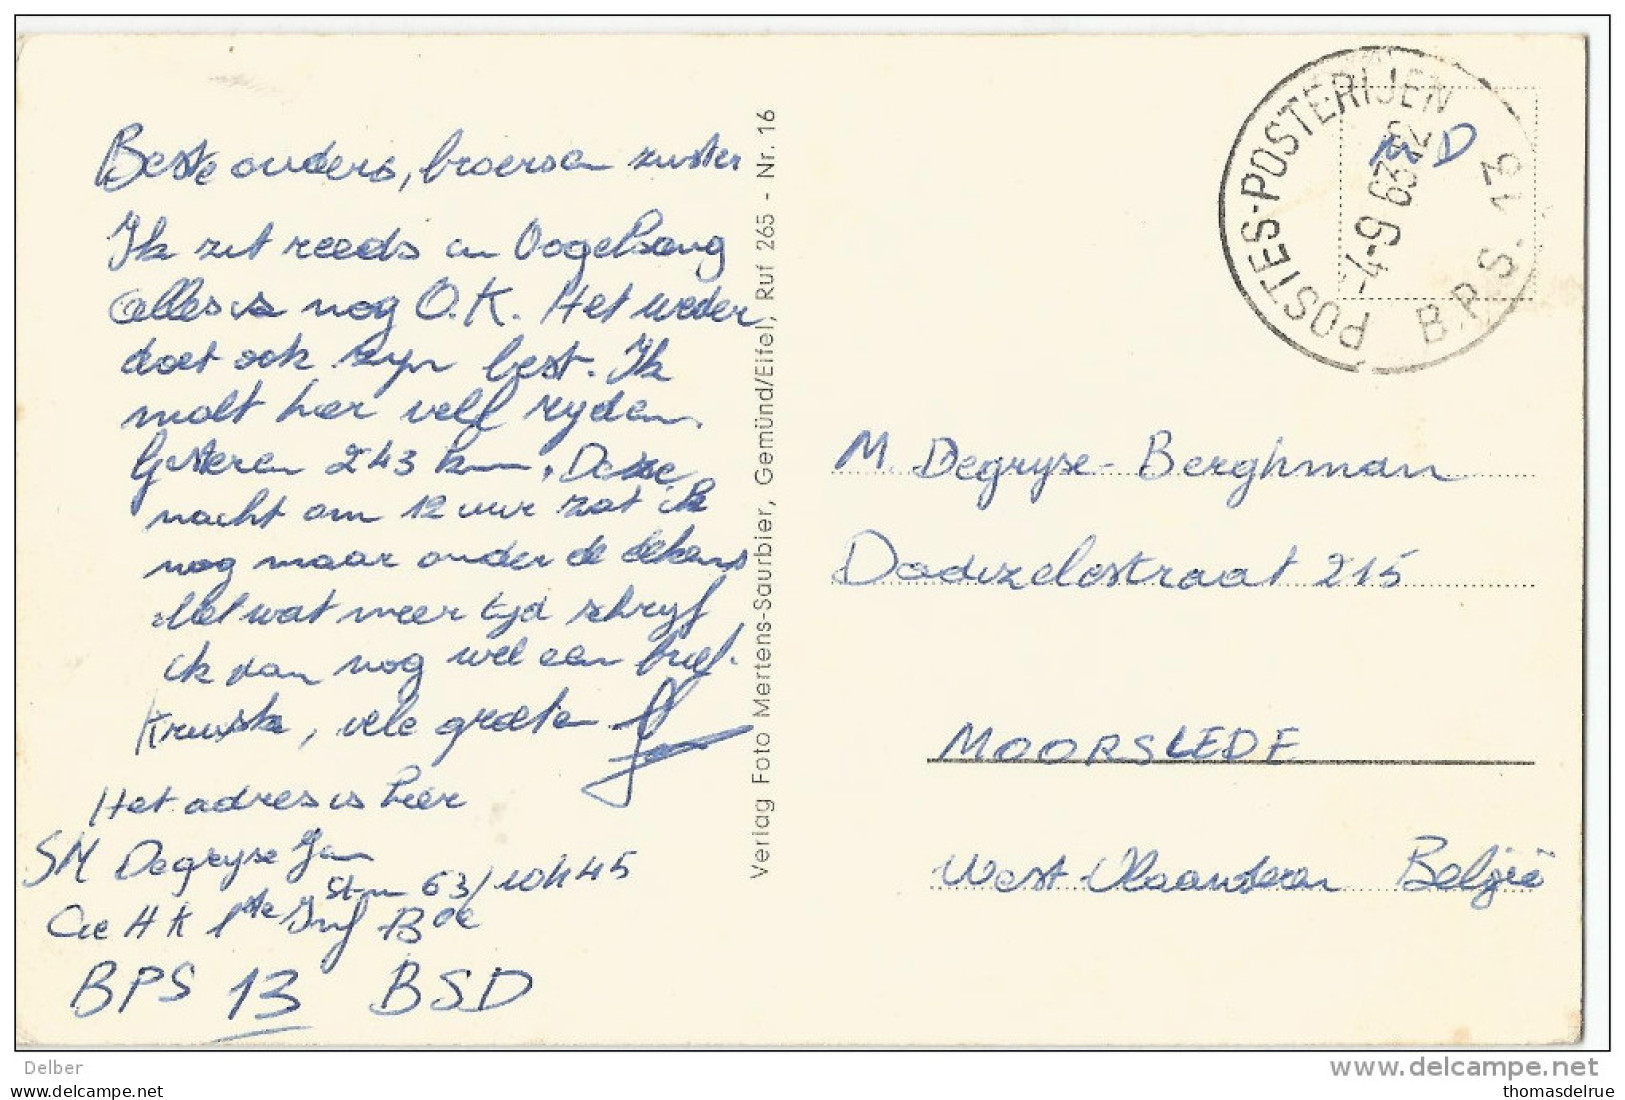 Beste ouders, broersen zuster
Ik zit reeds in Vogelsang
alles is nog O.K. Het weder
doet ook zyn best. Ik
moet hier veel ryden.
Gisteren 243 km. Deze
nacht om 12 uur zat ik
nog maar onder de dekens
Met wat meer tyd schryf
ik dan nog wel een brief.
Kruiske, vele groeten
Het adres is hier
SM Degryse Jan
Stnr 63/10445
Cie HK 1ste Inf Bde
BPS 13 BSD
Verlag Foto Mertens-Saurbier, Gemünd/Eifel, Ruf 265 - Nr. 16
POSTES-POSTERIJEN
B.P.S. 13
-4-9 6329
M. Degryse-Berghman
Dadizelestraat 215
MOORSLEDE
West-Vlaanderen België
Delber
delcampe.net
thomasdelrue